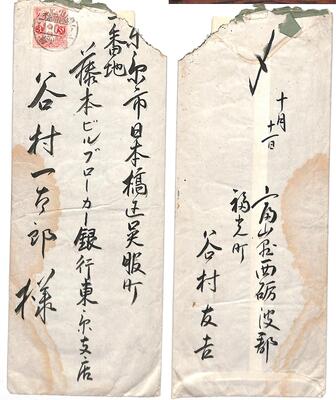 東京市日本橋区呉服町
一番地
藤本ビルブローカー銀行東京支店
谷村一太郎様
〆
十月
十一日
富山県西砺波郡
福光町
谷村友吉